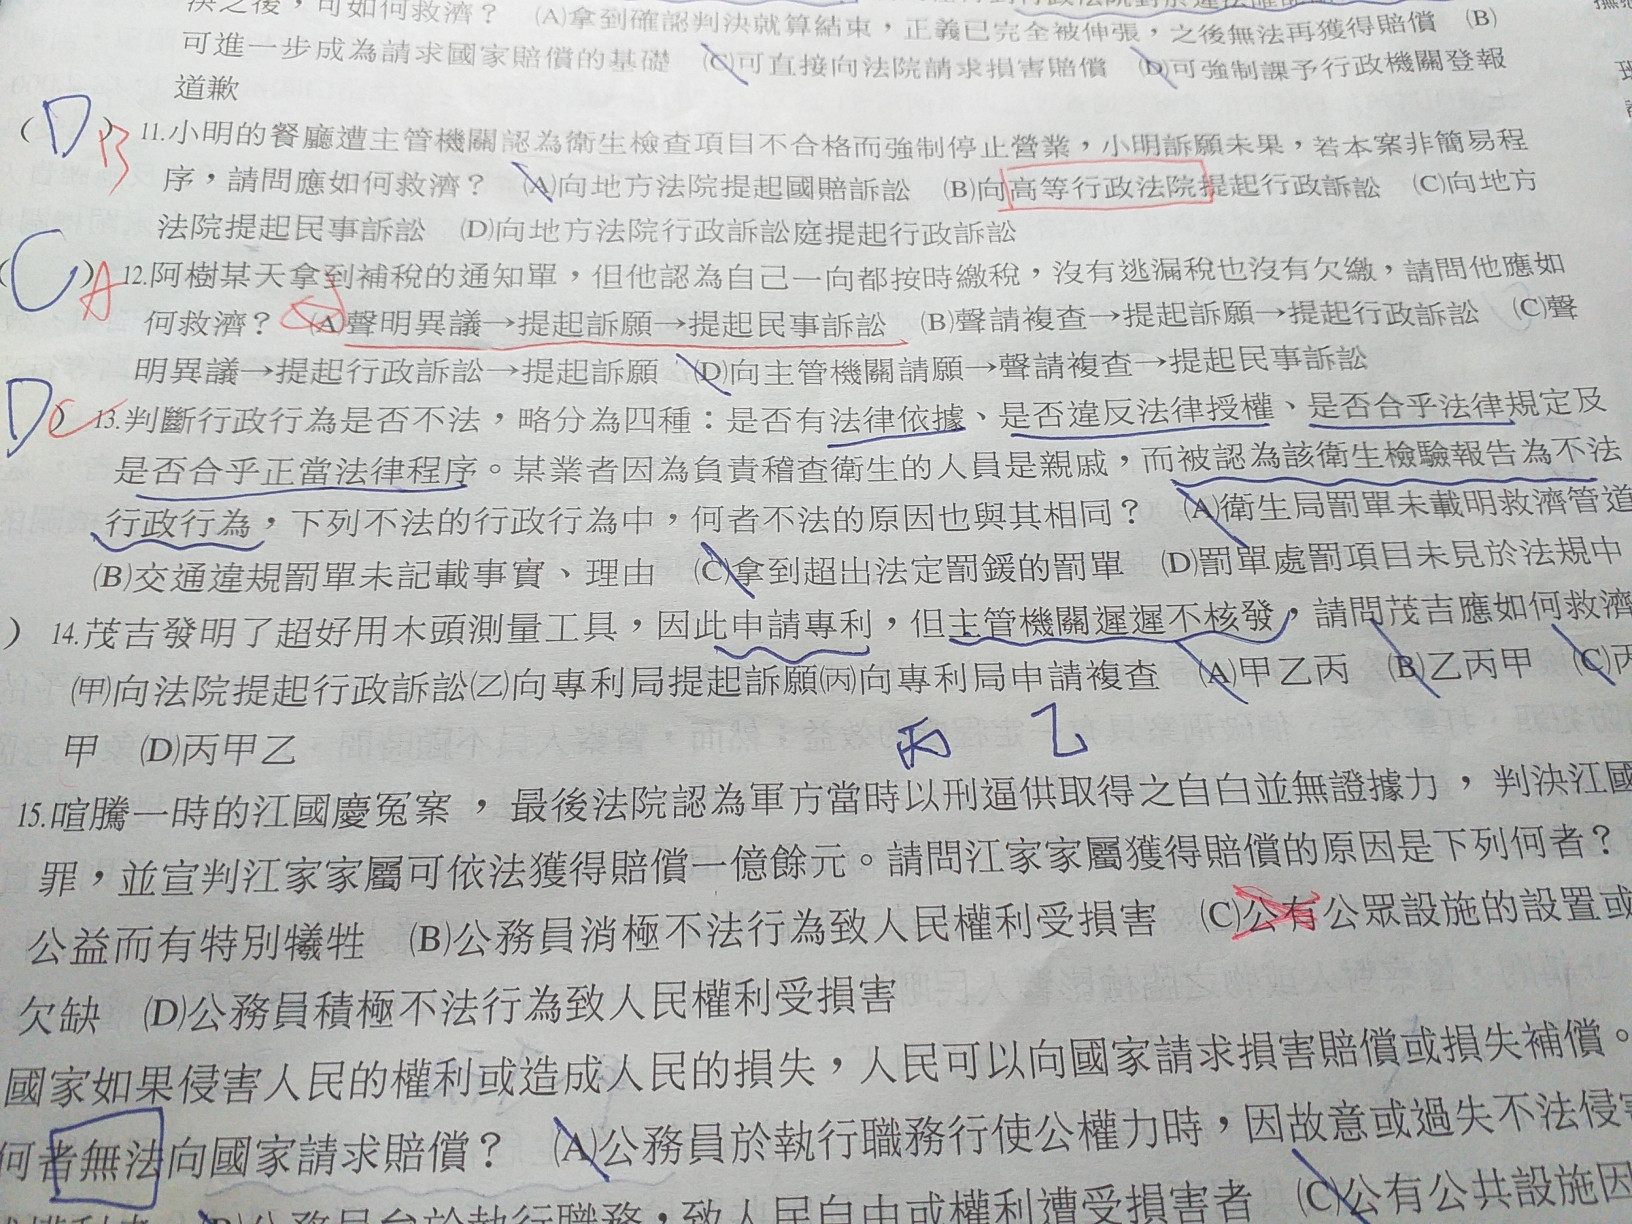 決之後，可如何救濟？ (A)拿到確認判決就算結束，正義已完全被伸張，之後無法再獲得賠償 (B)
可進一步成為請求國家賠償的基礎 (C)可直接向法院請求損害賠償 (D)可強制課予行政機關登報
道歉
(D) B 11.小明的餐廳遭主管機關認為衛生檢查項目不合格而強制停止營業，小明訴願未果，若本案非簡易程
序，請問應如何救濟？ (A)向地方法院提起國賠訴訟 (B)向高等行政法院提起行政訴訟 (C)向地方
法院提起民事訴訟 (D)向地方法院行政訴訟庭提起行政訴訟
(C) A 12.阿樹某天拿到補稅的通知單，但他認為自己一向都按時繳稅，沒有逃漏稅也沒有欠繳，請問他應如
何救濟？ (A)聲明異議→提起訴願→提起民事訴訟 (B)聲請複查→提起訴願→提起行政訴訟 (C)聲
明異議→提起行政訴訟→提起訴願 (D)向主管機關請願→聲請複查→提起民事訴訟
D) C 13.判斷行政行為是否不法，略分為四種：是否有法律依據、是否違反法律授權、是否合乎法律規定及
是否合乎正當法律程序。某業者因為負責稽查衛生的人員是親戚，而被認為該衛生檢驗報告為不法
行政行為，下列不法的行政行為中，何者不法的原因也與其相同？ (A)衛生局罰單未載明救濟管道
(B)交通違規罰單未記載事實、理由 (C)拿到超出法定罰鍰的罰單 (D)罰單處罰項目未見於法規中
) 14.茂吉發明了超好用木頭測量工具，因此申請專利，但主管機關遲遲不核發，請問茂吉應如何救濟
(甲)向法院提起行政訴訟(乙)向專利局提起訴願(丙)向專利局申請複查 (A)甲乙丙 (B)乙丙甲 (C)丙
甲 (D)丙甲乙
丙 乙
15.喧騰一時的江國慶冤案，最後法院認為軍方當時以刑逼供取得之自白並無證據力，判決江國
罪，並宣判江家家屬可依法獲得賠償一億餘元。請問江家家屬獲得賠償的原因是下列何者？
公益而有特別犧牲 (B)公務員消極不法行為致人民權利受損害 (C)公有公眾設施的設置或
欠缺 (D)公務員積極不法行為致人民權利受損害
國家如果侵害人民的權利或造成人民的損失，人民可以向國家請求損害賠償或損失補償。
何者無法向國家請求賠償？ (A)公務員於執行職務行使公權力時，因故意或過失不法侵害
致人民自由或權利遭受損害者 (C)公有公共設施因